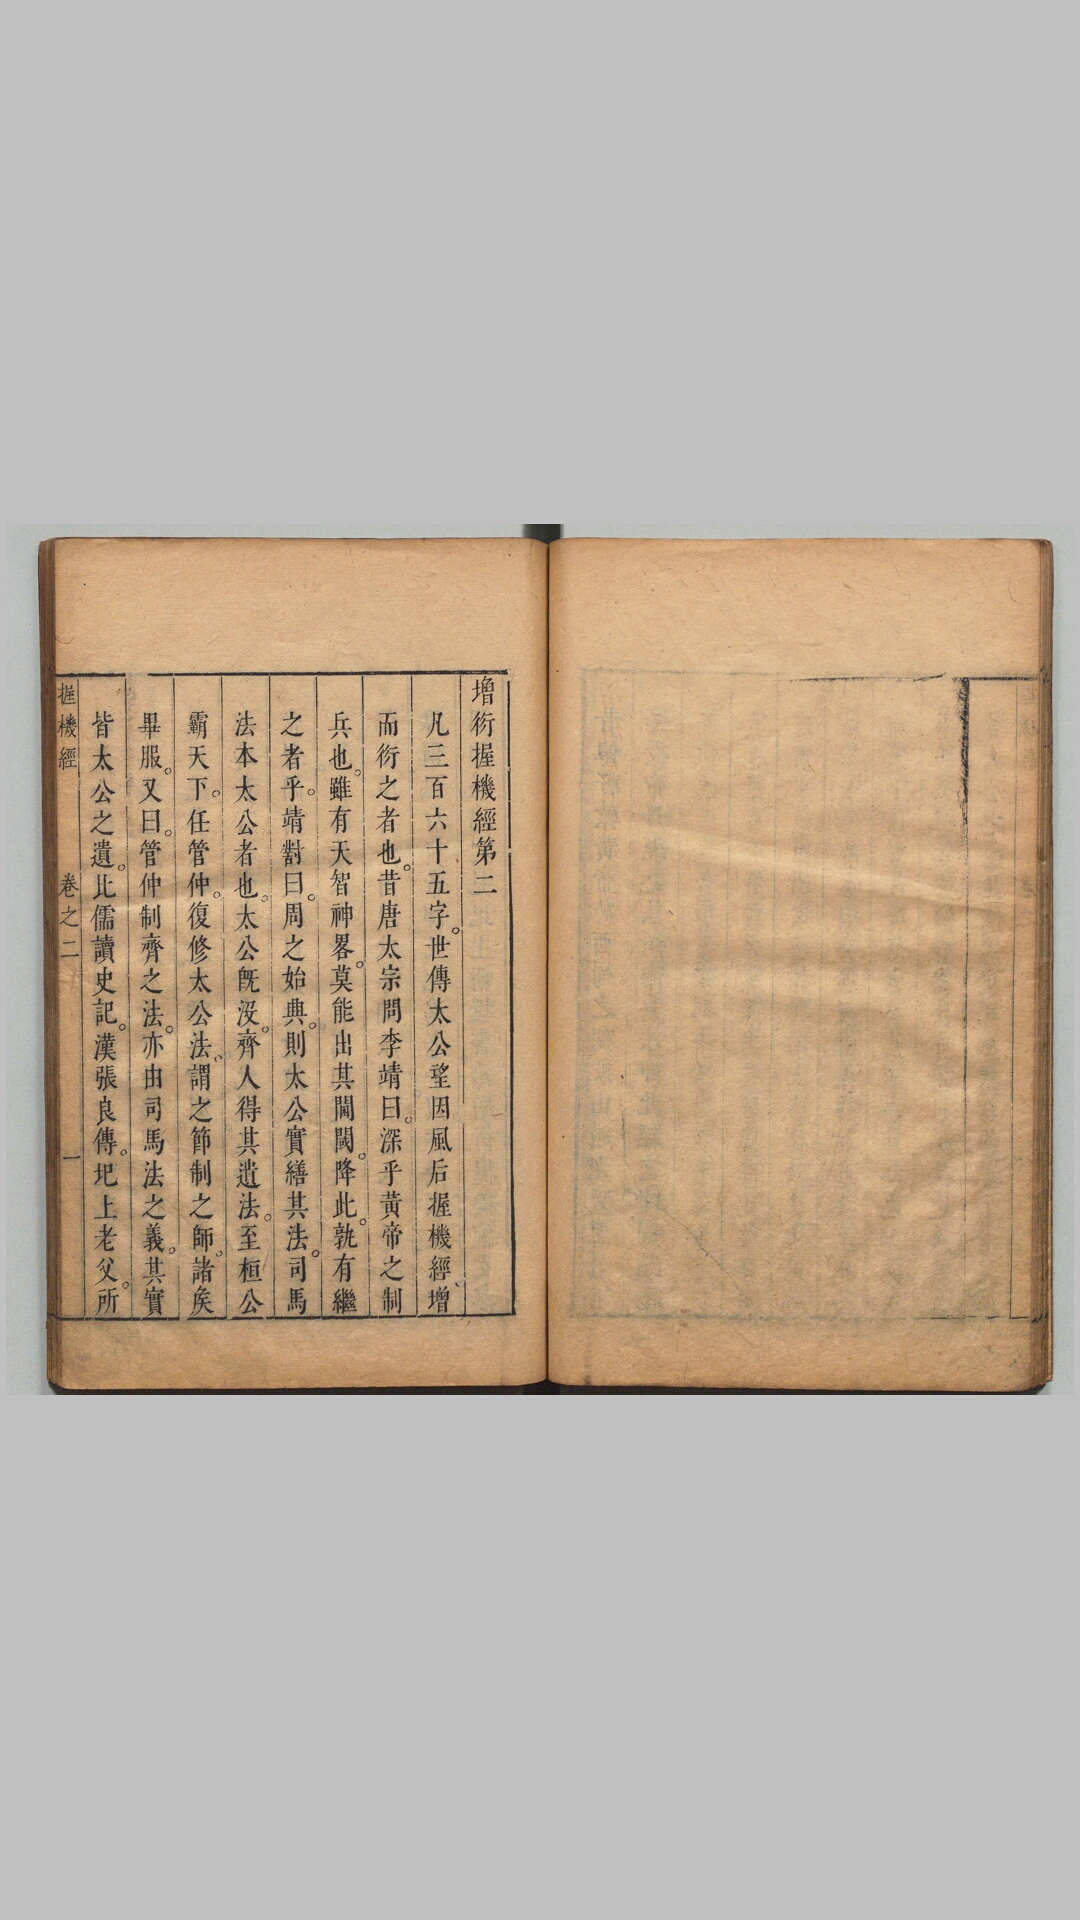 增衍握機經第二
凡三百六十五字。世傳太公望因風后握機經、增
而衍之者也。昔唐太宗問李靖曰。深乎黃帝之制
兵也。雖有天智神畧。莫能出其閫閾。降此。孰有繼
之者乎。靖對曰。周之始典。則太公實繕其法。司馬
法本太公者也。太公旣沒。齊人得其遺法。至桓公
霸天下。任管仲。復修太公法。謂之節制之師。諸矦
畢服。又曰。管仲制齊之法。亦由司馬法之義。其實
皆太公之遺。比儒讀史記。漢張良傳。圯上老父。所
握機經 卷之二 一